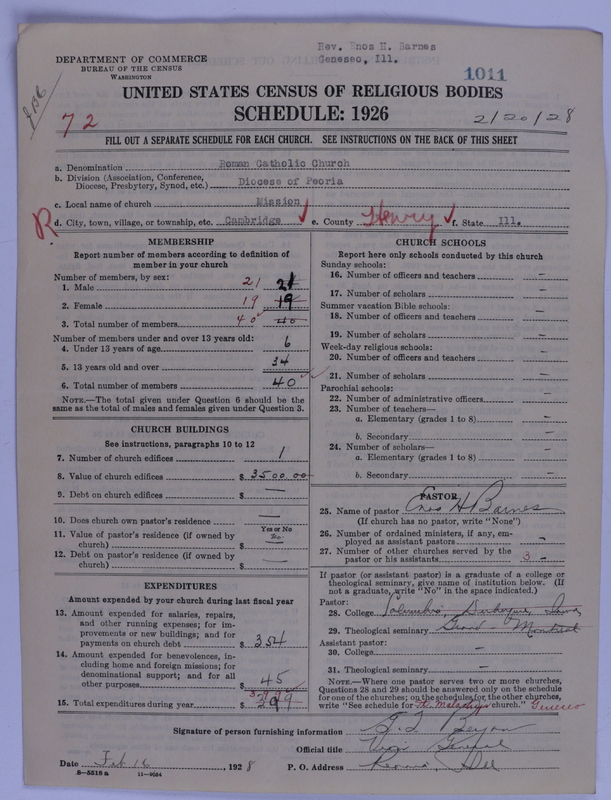 Rev. Enos H. Barnes
Geneseo, Ill.
DEPARTMENT OF COMMERCE
BUREAU OF THE CENSUS
WASHINGTON
1011
UNITED STATES CENSUS OF RELIGIOUS BODIES
SCHEDULE: 1926
72
2/20/28
FILL OUT A SEPARATE SCHEDULE FOR EACH CHURCH. SEE INSTRUCTIONS ON THE BACK OF THIS SHEET
a. Denomination Roman Catholic Church
b. Division (Association, Conference, Diocese, Presbytery, Synod, etc.) Diocese of Peoria
c. Local name of church Mission
R
d. City, town, village, or township, etc. Cambridge e. County Henry f. State Ill.
MEMBERSHIP
Report number of members according to definition of member in your church
Number of members, by sex:
1. Male 21 21
2. Female 19 19
3. Total number of members 40 40
Number of members under and over 13 years old:
4. Under 13 years of age 6
5. 13 years old and over 34
6. Total number of members 40
NOTE.—The total given under Question 6 should be the same as the total of males and females given under Question 3.
CHURCH BUILDINGS
See instructions, paragraphs 10 to 12
7. Number of church edifices 1
8. Value of church edifices $ 3500.00
9. Debt on church edifices $ —
10. Does church own pastor's residence —
Yes or No
11. Value of pastor's residence (if owned by church) $ —
12. Debt on pastor's residence (if owned by church) $ —
EXPENDITURES
Amount expended by your church during last fiscal year
13. Amount expended for salaries, repairs, and other running expenses; for improvements or new buildings; and for payments on church debt $ 354
14. Amount expended for benevolences, including home and foreign missions; for denominational support; and for all other purposes $ 45
15. Total expenditures during year $ 399
CHURCH SCHOOLS
Report here only schools conducted by this church
Sunday schools:
16. Number of officers and teachers —
17. Number of scholars —
Summer vacation Bible schools:
18. Number of officers and teachers —
19. Number of scholars —
Week-day religious schools:
20. Number of officers and teachers —
21. Number of scholars —
Parochial schools:
22. Number of administrative officers —
23. Number of teachers—
a. Elementary (grades 1 to 8) —
b. Secondary —
24. Number of scholars—
a. Elementary (grades 1 to 8) —
b. Secondary —
PASTOR
25. Name of pastor Enos H Barnes
(If church has no pastor, write "None")
26. Number of ordained ministers, if any, employed as assistant pastors —
27. Number of other churches served by the pastor or his assistants 3 —
If pastor (or assistant pastor) is a graduate of a college or theological seminary, give name of institution below. (If not a graduate, write "No" in the space indicated.)
Pastor:
28. College Columbia, Dubuque, Iowa
29. Theological seminary Grand Montreal
Assistant pastor:
30. College —
31. Theological seminary —
NOTE.—Where one pastor serves two or more churches, Questions 28 and 29 should be answered only on the schedule for one of the churches; on the schedules for the other churches, write "See schedule for St. Malachys church." Geneseo
Signature of person furnishing information
Official title
Date Feb 16, 1928 P. O. Address Peoria, Ill
8—5518 a 11—9084